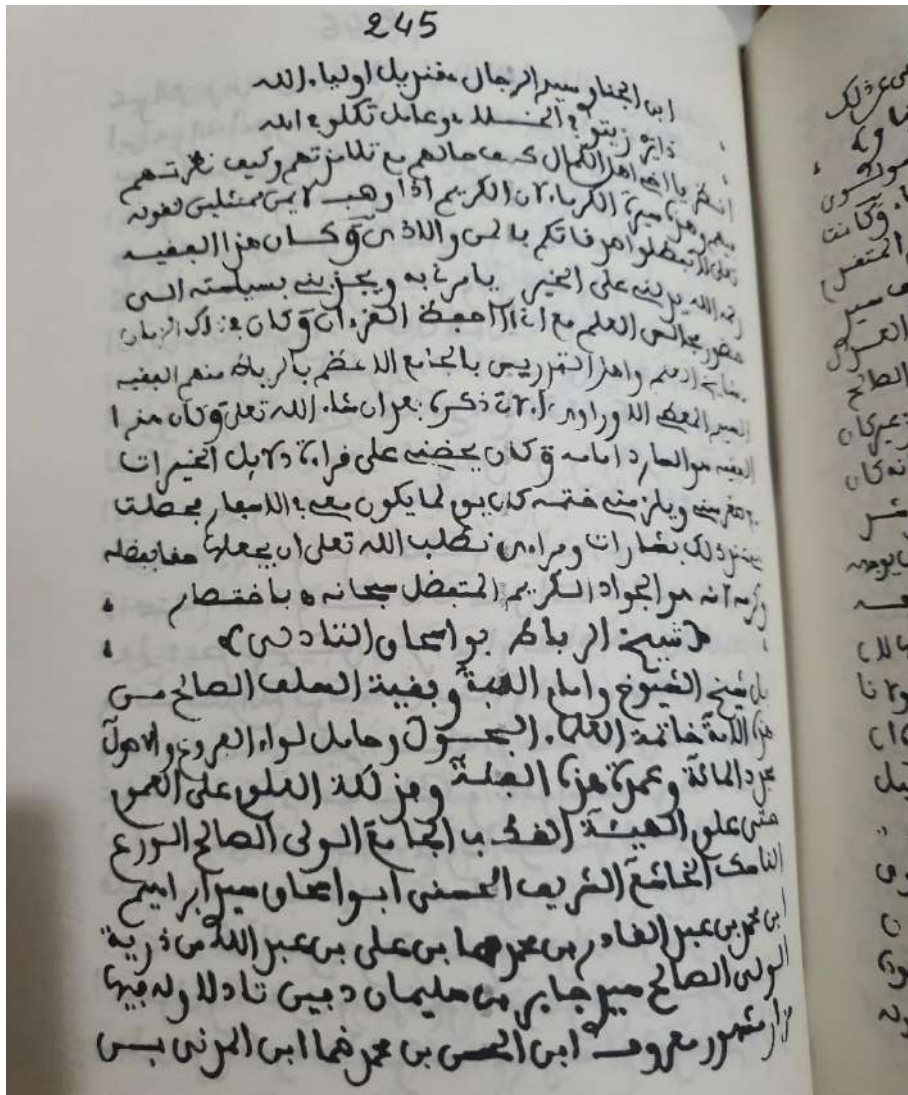 245
ابن الجنا وسير الرجال مقنزيل اولياء الله
دايره زيتو في الخسلله وعامل تكلو في الله
انظر يا اخي اهل الكمال كيف حالهم مع تلامذتهم وكيف نظرتهم
فيهم وهذا سيرة الكرماء لان الكريم اذا وهب لا يمن ممتثلين لقوله
تعلى لا تبطلوا صدقاتكم بالمن والاذى وكان هذا الفقيه
رحمه الله يدلني على الخير يامرنا به ويجذبني بسياسته الى
حضور مجالس العلم مع اني اذاك احفظ القرءان وكان في ذلك الزمان
مشايخ العلم واهل التدريس بالجامع الاعظم بالرباط منهم الفقيه
السيد المعطي الا وراوي الات ذكره بعد ان شاء الله تعلى وكان هذا
الفقيه هو السارد امامه وكان يحضني على قراءة دلايل الخيرات
في صغري ويلزمني ختمه كل يوم لما يكون معي في الاسفار فحصلت
بسبب ذلك بشارات ومراءي نطلب الله تعلى ان يجعلها حقا بفضله
وكرمه انه هو الجواد الكريم المتفضل سبحانه ه باختصار
﴿شيخ الرباط بو اسحاق التادلي﴾
بل شيخ الشيوخ وامام الايمة وبقية السلف الصالح من
هذه الامة خاتمة العلماء الفحول وحامل لواء الفروع والاصول
مجدد المائة وعمدة هذه الفئة وفذلكة العلوم على العموم
حتى علو الهيئة القطب الجامع الولي الصالح الورع
الناسك الخاشع الشريف الحسني ابو اسحاق سيد ابراهيم
ابن محمد بن عبد القادر بن محمد فتحا بن علي بن عبد الله من ذرية
الولي الصالح سيد جابر بن سليمان دفين تادلا وله فيها
مزار مشهور معروف ابن الحسن بن محمد ضما ابن المدني بن